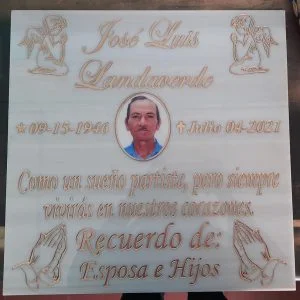 José Luis
Landaverde
09-15-1946 Julio 04-2021
Como un sueño partiste, pero siempre
vivirás en nuestros corazones.
Recuerdo de:
Esposa e Hijos